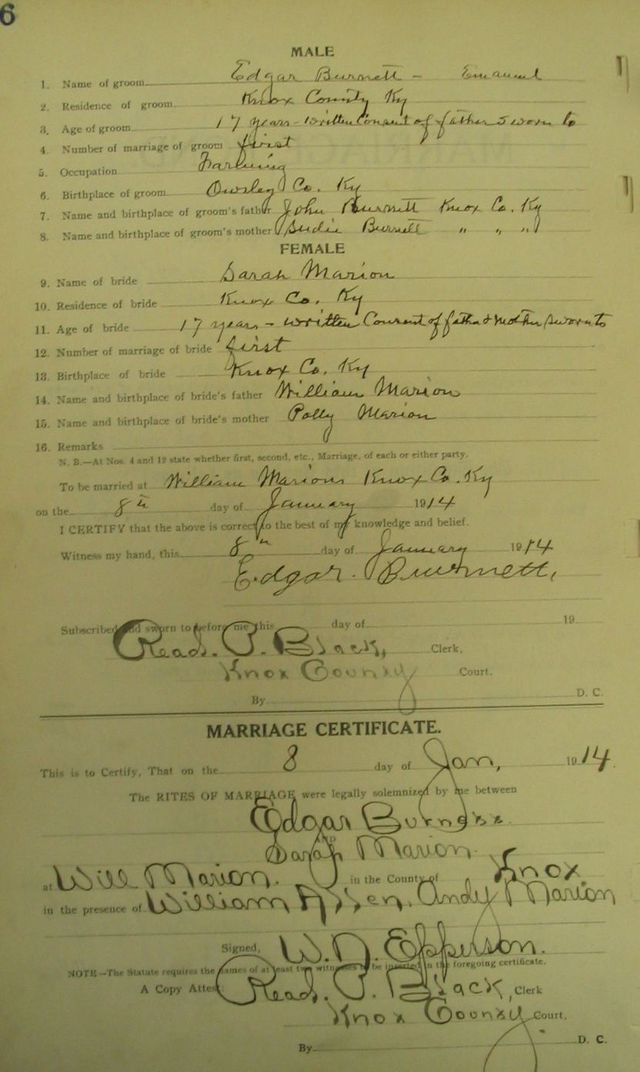 6
MALE
1. Name of groom Edgar Burnett - Emanuel
2. Residence of groom Knox County Ky
3. Age of groom 17 years - written Consent of father sworn to
4. Number of marriage of groom first
5. Occupation Farming
6. Birthplace of groom Owsley Co. Ky
7. Name and birthplace of groom's father John Burnett Knox Co. Ky
8. Name and birthplace of groom's mother Sudie Burnett " " "
FEMALE
9. Name of bride Sarah Marion
10. Residence of bride Knox Co. Ky
11. Age of bride 17 years - written Consent of father & mother sworn to
12. Number of marriage of bride first
13. Birthplace of bride Knox Co. Ky
14. Name and birthplace of bride's father William Marion
15. Name and birthplace of bride's mother Polly Marion
16. Remarks
N. B.—At Nos. 4 and 12 state whether first, second, etc., Marriage, of each or either party.
To be married at William Marions Knox Co. Ky
on the 8th day of January 1914
I CERTIFY that the above is correct to the best of my knowledge and belief.
Witness my hand, this 8th day of January 1914
Edgar Burnett,
Subscribed and sworn to before me this day of 19
Read. P. Black, Clerk,
Knox County Court.
By D. C.
MARRIAGE CERTIFICATE.
This is to Certify, That on the 8 day of Jan, 1914.
The RITES OF MARRIAGE were legally solemnized by me between
Edgar
AND
Sarah Marion.
at Will Marion. in the County of Knox
in the presence of William Andy Marion
Signed, W. N. Epperson.
NOTE—The Statute requires the names of at least two witnesses to be inserted in the foregoing certificate.
A Copy Attest Read. P. Black, Clerk
Knox County Court.
By D. C.